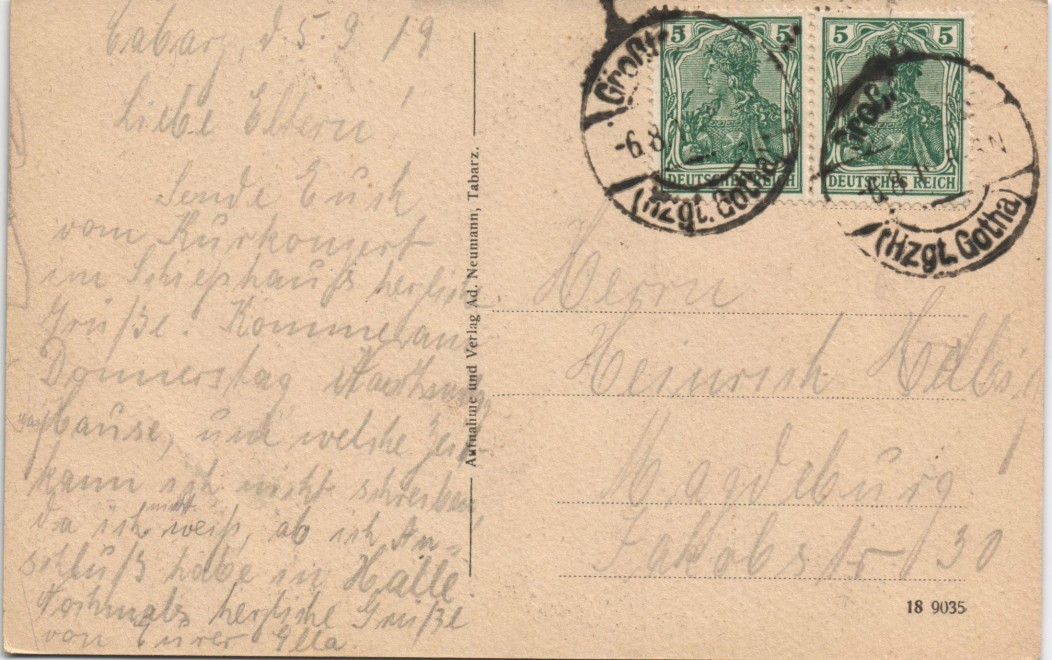 Tabarz, d. 5. 9 19
Liebe Eltern!
Sende Euch
vom Kurkonzert
im Schießhauß herzliche
Grüße. Komme am
Donnerstag Nachm.
nach Hause, und welche Zeit
kann ich nicht schreiben
da ich nicht weiß, ob ich An-
schluß habe in Halle
Nochmals herzliche Grüße
von Eurer Ella.
Aufnahme und Verlag Ad. Neumann, Tabarz.
5 5
DEUTSCHES REICH
5 5
DEUTSCHES REICH
(Hzgt. Gotha)
(Hzgt. Gotha)
Herrn
Heinrich
Magdeburg
Jakobstr 30
18 9035